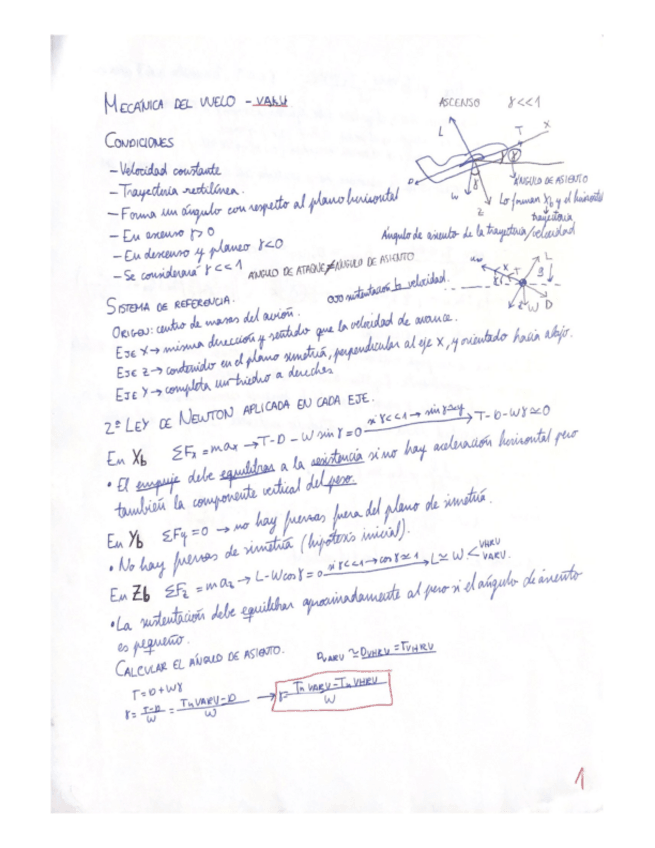 MECÁNICA DEL VUELO - VARU
CONDICIONES
- Velocidad constante
- Trayectoria rectilínea.
- Forma un ángulo con respecto al plano horizontal
- En ascenso γ>0
- En descenso y planeo γ<0
- Se considerará γ<<1 ANGULO DE ATAQUE≠ÁNGULO DE ASIENTO
ASCENSO γ<<1
L T X
D γ
W γ Z
ÁNGULO DE ASIENTO
Lo forman Xb y el horizontal
trayectoria
Ángulo de asiento de la trayectoria/velocidad
SISTEMA DE REFERENCIA.
OJO sustentación ⊥ velocidad.
X T L
Z W D
ORIGEN: centro de masas del avión.
EJE X → misma dirección y sentido que la velocidad de avance.
EJE Z → contenido en el plano simetría, perpendicular al eje X, y orientado hacia abajo.
EJE Y → completa un triedro a derechas
2ª LEY DE NEWTON APLICADA EN CADA EJE.
En Xb ΣFx = max → T-D-W sin γ = 0 si γ<<1 → sin γ≃γ → T-D-Wγ≃0
• El empuje debe equilibrar a la resistencia si no hay aceleración horizontal pero
también la componente vertical del peso.
En Yb ΣFy = 0 → no hay fuerzas fuera del plano de simetría.
• No hay fuerzas de simetría (hipótesis inicial).
En Zb ΣFz = maz → L-Wcos γ = 0 si γ<<1 → cos γ≃1 → L≃W < VHRU VARU.
• La sustentación debe equilibrar aproximadamente al peso si el ángulo de asiento
es pequeño.
CALCULAR EL ÁNGULO DE ASIENTO. DVARU ≃ DVHRU = TVHRU
T = D + Wγ
γ = T-D/W = Tn VARU - D/W → γ = Tn VARU - Tn VHRU/W
1